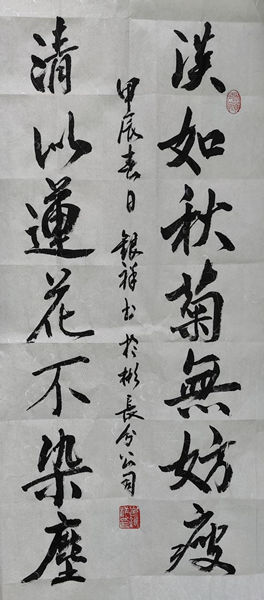 淡如秋菊無妨瘦
清似蓮花不染塵
甲辰春日 銀祥书於彬長分公司